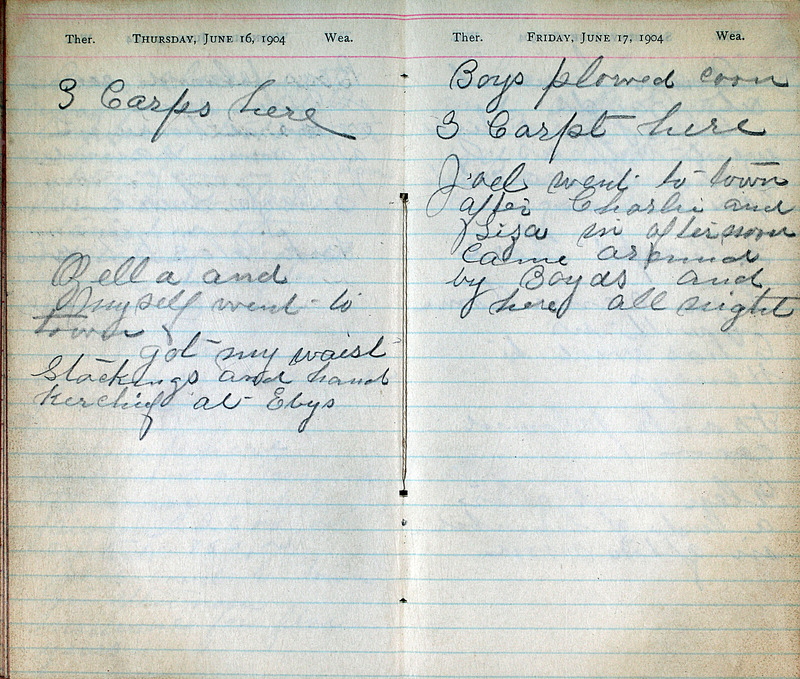 Ther. THURSDAY, JUNE 16, 1904 Wea.
3 Carps here
Rella and
myself went to
town
got my waist
stockings and hand
kerchief at Ebys
Ther. FRIDAY, JUNE 17, 1904 Wea.
Boys plowed corn
3 Carpt here
Joel went to town
after Charlie and
Liza in afternoon
Came around
by Boyds and
here all night